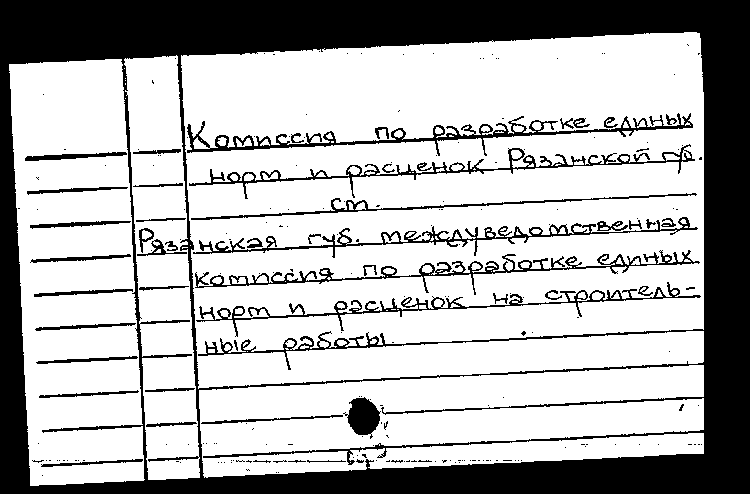 Комиссия по разработке единых
норм и расценок Рязанской губ.
см.
Рязанская губ. междуведомственная
комиссия по разработке единых
норм и расценок на строитель-
ные работы